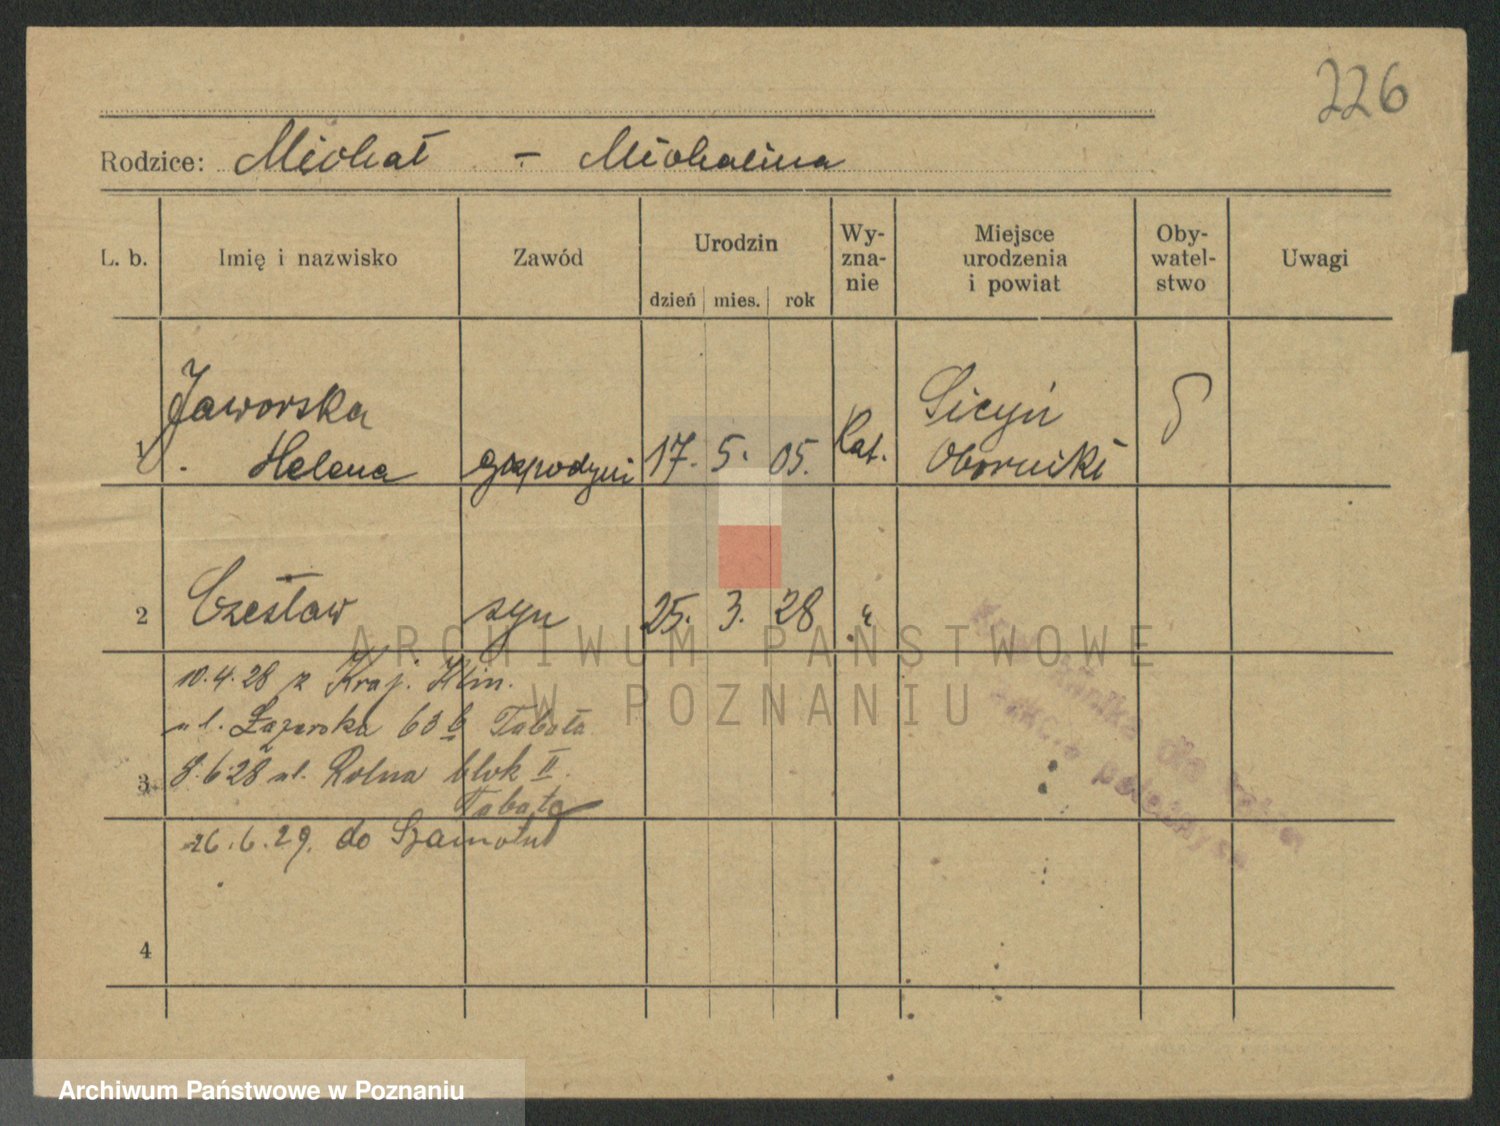 226
Rodzice: Michał - Michalina
L. b. Imię i nazwisko Zawód Urodzin dzień mies. rok Wy-zna-nie Miejsce urodzenia i powiat Oby-watel-stwo Uwagi
Jaworska
1 Helena gospodyni 17. 5. 05. Kat. Sicyń Oborniki
2 Czesław syn 25. 3. 28 "
10.4.28 z Kraj. Klin.
ul. Łazarska 63 b Tabata
3 8.6.28 ul. Rolna blok II.
Tabata
26.6.29. do Szamotuł
4
ARCHIWUM PAŃSTWOWE
W POZNANIU
Archiwum Państwowe w Poznaniu